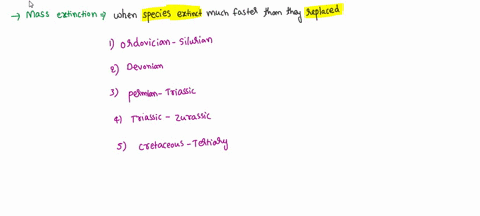 → Mass extinction ⇒ when species extinct much faster than they replaced
1) Ordovician - Silurian
2) Devonian
3) Permian - Triassic
4) Triassic - Zurassic
5) Cretaceous - Tertiary